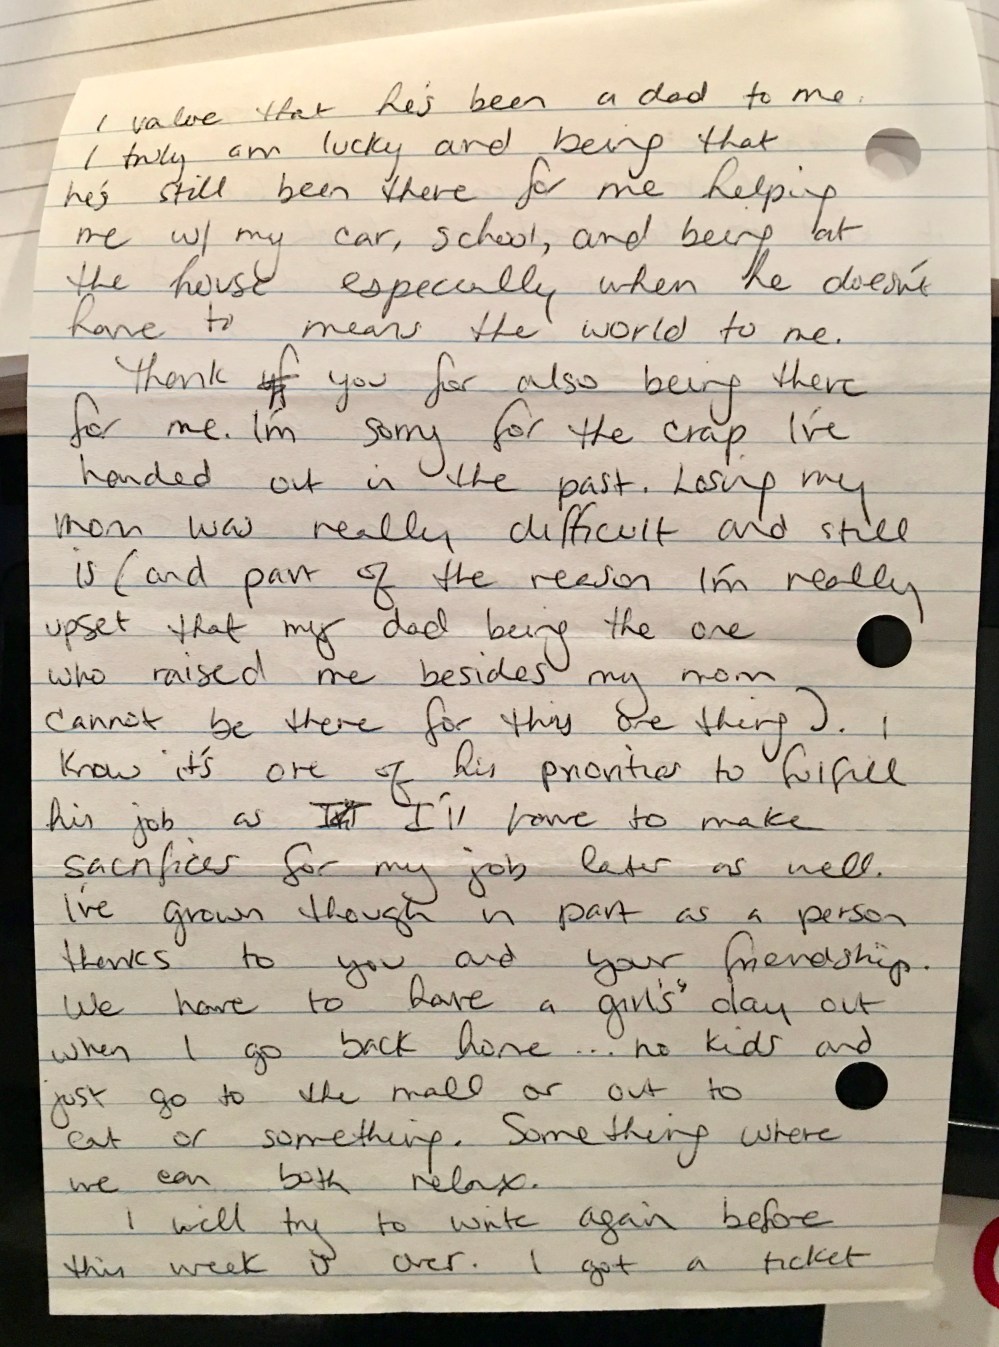 I value that he's been a dad to me.
I truly am lucky and being that
he's still been there for me helping
me w/ my car, school, and being at
the house especially when he doesn't
have to means the world to me.
Thank you for also being there
for me. I'm sorry for the crap I've
handed out in the past. Losing my
mom was really difficult and still
is (and part of the reason I'm really
upset that my dad being the one
who raised me besides my mom
cannot be there for this one thing). I
know it's one of his priorities to fulfill
his job as I'll have to make
sacrifices for my job later as well.
I've grown though in part as a person
thanks to you and your friendship.
We have to have a girl's day out
when I go back home... no kids and
just go to the mall or out to
eat or something. Something where
we can both relax.
I will try to write again before
this week is over. I got a ticket